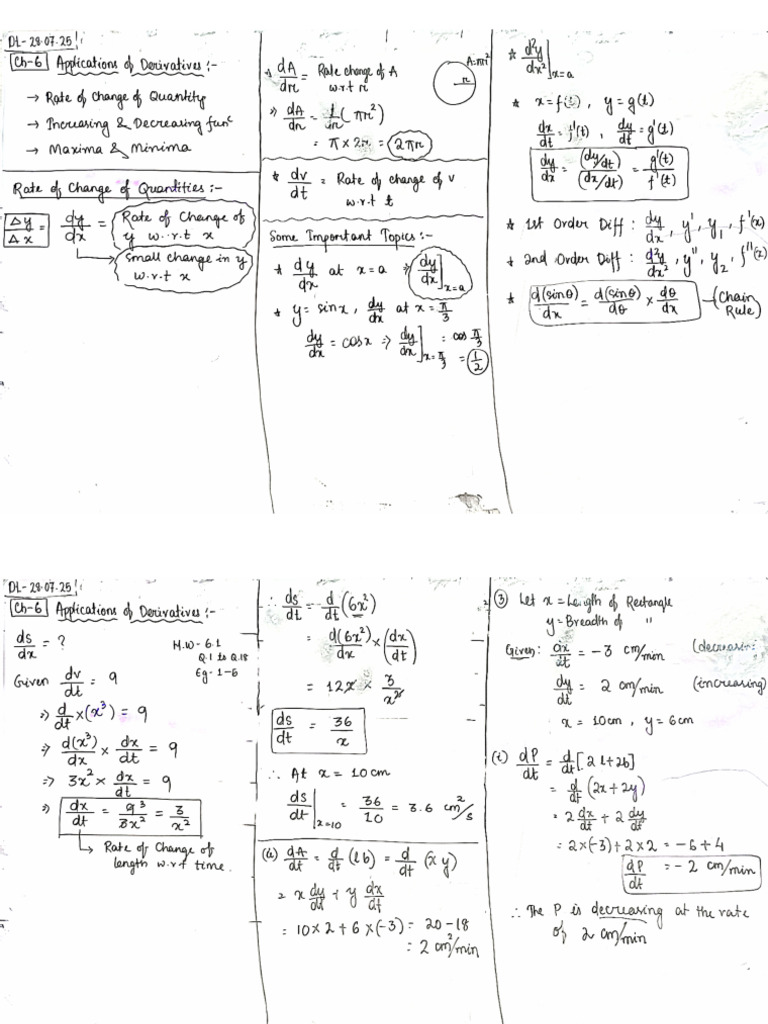 Dt-28.07.25!
Ch-6 Applications of Derivatives :-
→ Rate of Change of Quantity
→ Increasing & Decreasing funᶜ
→ Maxima & Minima
Rate of Change of Quantities :-
Δy/Δx = dy/dx = Rate of Change of y w.r.t x
↳ Small change in y w.r.t x
→ dA/dr = Rate change of A w.r.t r
A=πr²
r
⇒ dA/dr = d/dr (πr²)
= π × 2r = 2πr
* dv/dt = Rate of change of v w.r.t t
Some Important Topics :-
* dy/dx at x=a ⇒ dy/dx]x=a
* y = sinx, dy/dx at x = π/3
dy/dx = cosx ⇒ dy/dx]x=π/3 = cos π/3
= 1/2
* d²y/dx²]x=a
* x = f(t), y = g(t)
dx/dt = f'(t), dy/dt = g'(t)
dy/dx = (dy/dt)/(dx/dt) = g'(t)/f'(t)
* 1st Order Diff : dy/dx, y', y₁, f'(x)
* 2nd Order Diff : d²y/dx², y'', y₂, f''(x)
* d(sinθ)/dx = d(sinθ)/dθ × dθ/dx - (Chain Rule)
Dt-28.07.25!
Ch-6 Applications of Derivatives :-
ds/dx = ?
H.W - 6.1
Q.1 to Q.18
Eg - 1-6
Given dv/dt = 9
⇒ d/dt × (x³) = 9
⇒ d(x³)/dx × dx/dt = 9
⇒ 3x² × dx/dt = 9
⇒ dx/dt = 9³/3x² = 3/x²
↳ Rate of Change of
length w.r.t time.
∴ ds/dt = d/dt (6x²)
= d(6x²)/dx × (dx/dt)
= 12x × 3/x²
ds/dt = 36/x
∴ At x = 10 cm
ds/dt]x=10 = 36/10 = 3.6 cm²/s
(ii) dA/dt = d/dt (lb) = d/dt (xy)
= x dy/dt + y dx/dt
= 10×2 + 6×(-3) = 20-18
= 2 cm²/min
③ Let x = Length of Rectangle
y = Breadth of "
Given: dx/dt = -3 cm/min (decreasin
dy/dt = 2 cm/min (increasing)
x = 10cm, y = 6cm
(i) dP/dt = d/dt [2l+2b]
= d/dt (2x+2y)
= 2 dx/dt + 2 dy/dt
= 2×(-3) + 2×2 = -6+4
dP/dt = -2 cm/min
∴ The P is decreasing at the rate
of 2 cm/min